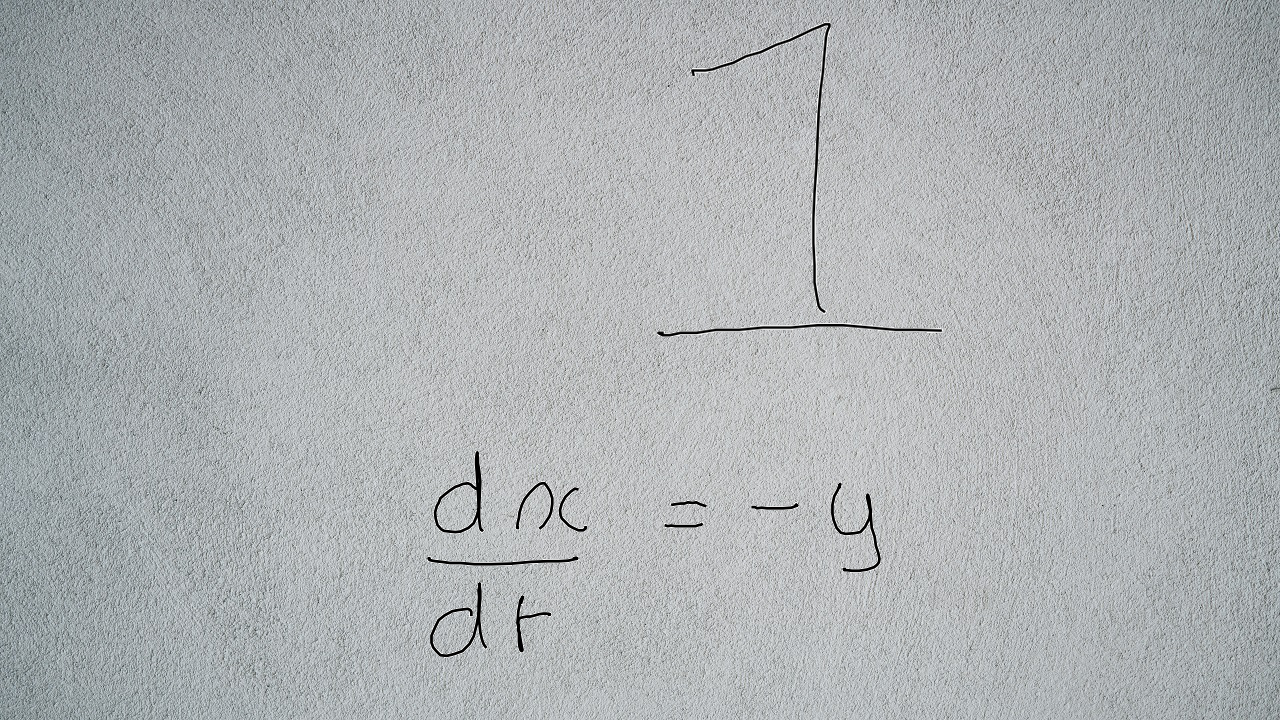 1
dx/dt = -y